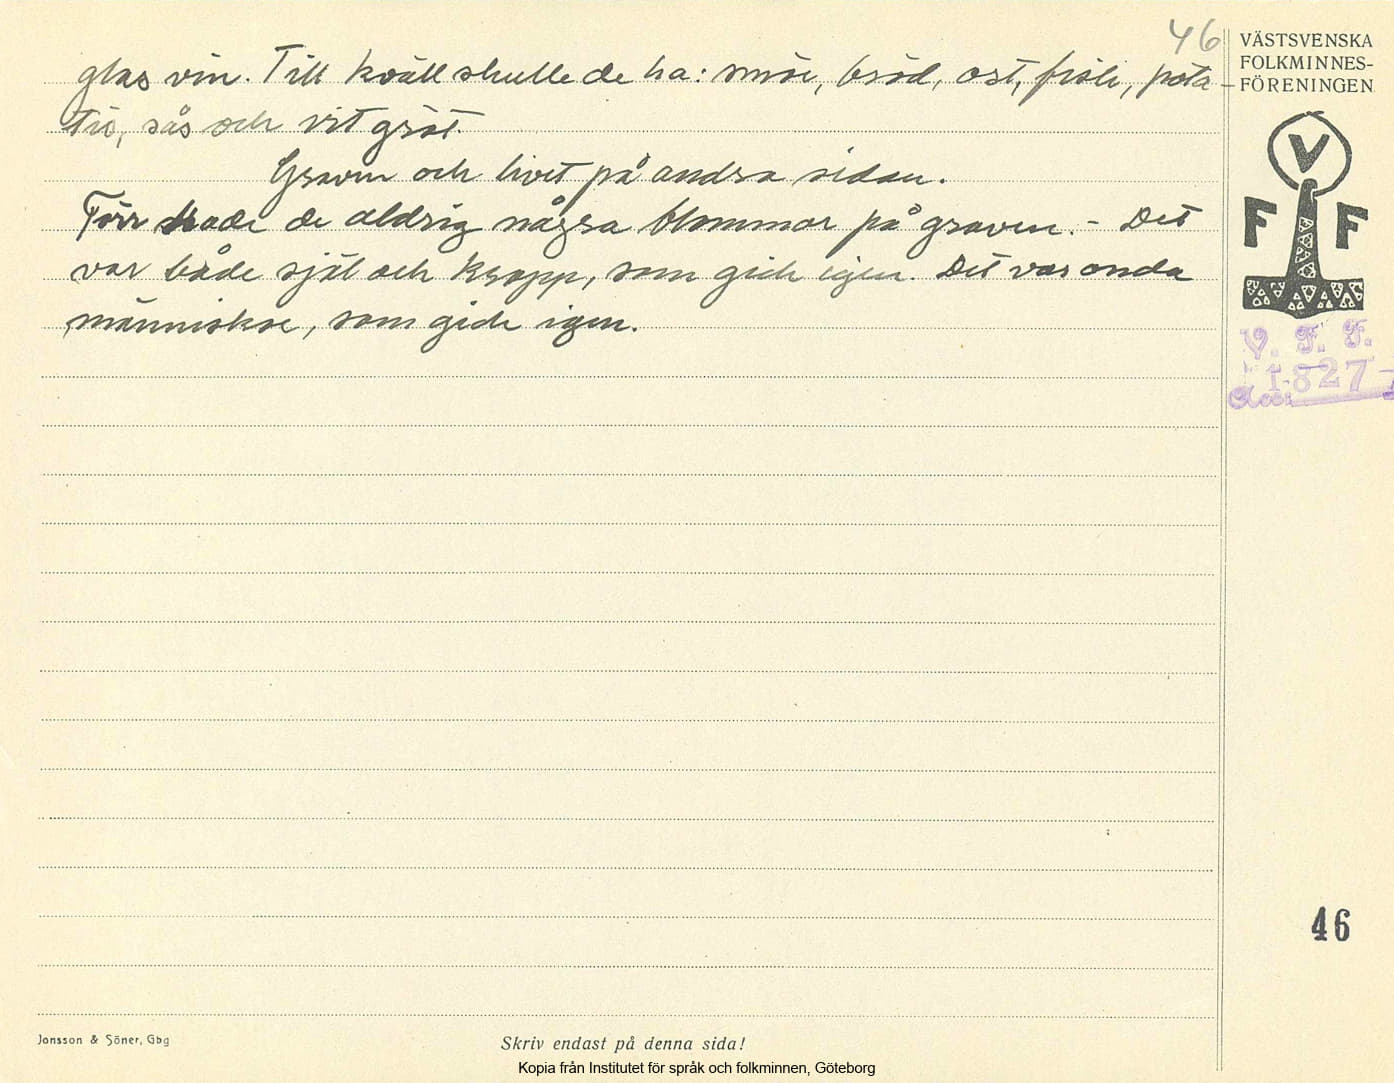 46
glas vin. Till kväll skulle de ha: smör, bröd, ost, fisk, pota-
tis, sås och vit gröt.
Graven och livet på andra sidan.
Förr hade de aldrig några blommor på graven. - Det
var både själ och kropp, som gick igen. Det var onda
människor, som gick igen.
VÄSTSVENSKA
FOLKMINNES-
FÖRENINGEN
V
F F
V. F. F.
1827
Acc.
46
Jonsson & Söner, Gbg
Skriv endast på denna sida!
Kopia från Institutet för språk och folkminnen, Göteborg